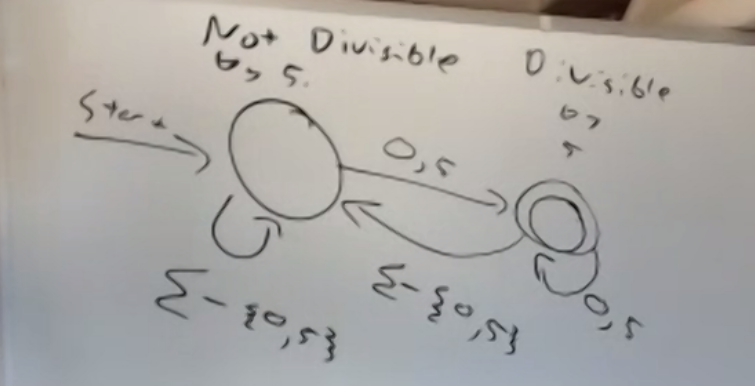 Not Divisible
by 5.
Divisible
by
5
Start
0,5
Σ-{0,5}
Σ-{0,5}
0,5